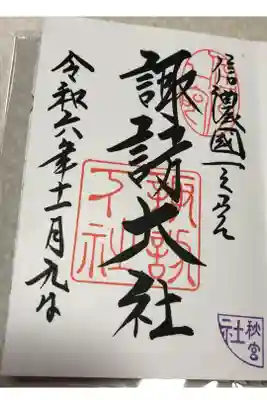 信濃國一之宮
諏訪大社
諏訪下社
令和六年十一月九日
秋宮
社